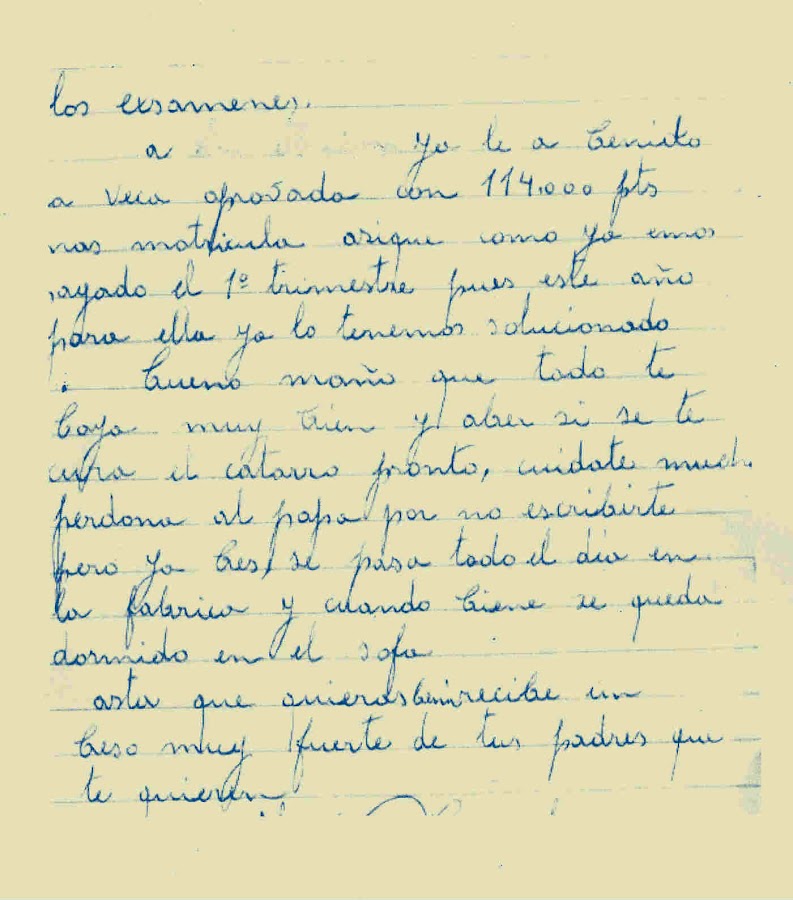 los exsamenes.
a Ya le a benido
a veca aprosada con 114.000 pts
mas matricula asique como ya emos
pagado el 1º trimestre pues este año
para ella ya lo tenemos solucionado
. bueno maño que todo te
baya muy bien y aber si se te
cura el catarro pronto, cuidate much.
perdona al papa por no escribirte
pero ya bes, se pasa todo el dia en
la fabrica y cuando biene se queda
dormido en el sofa
asta que quieras benir recibe un
beso muy fuerte de tus padres que
te quieren